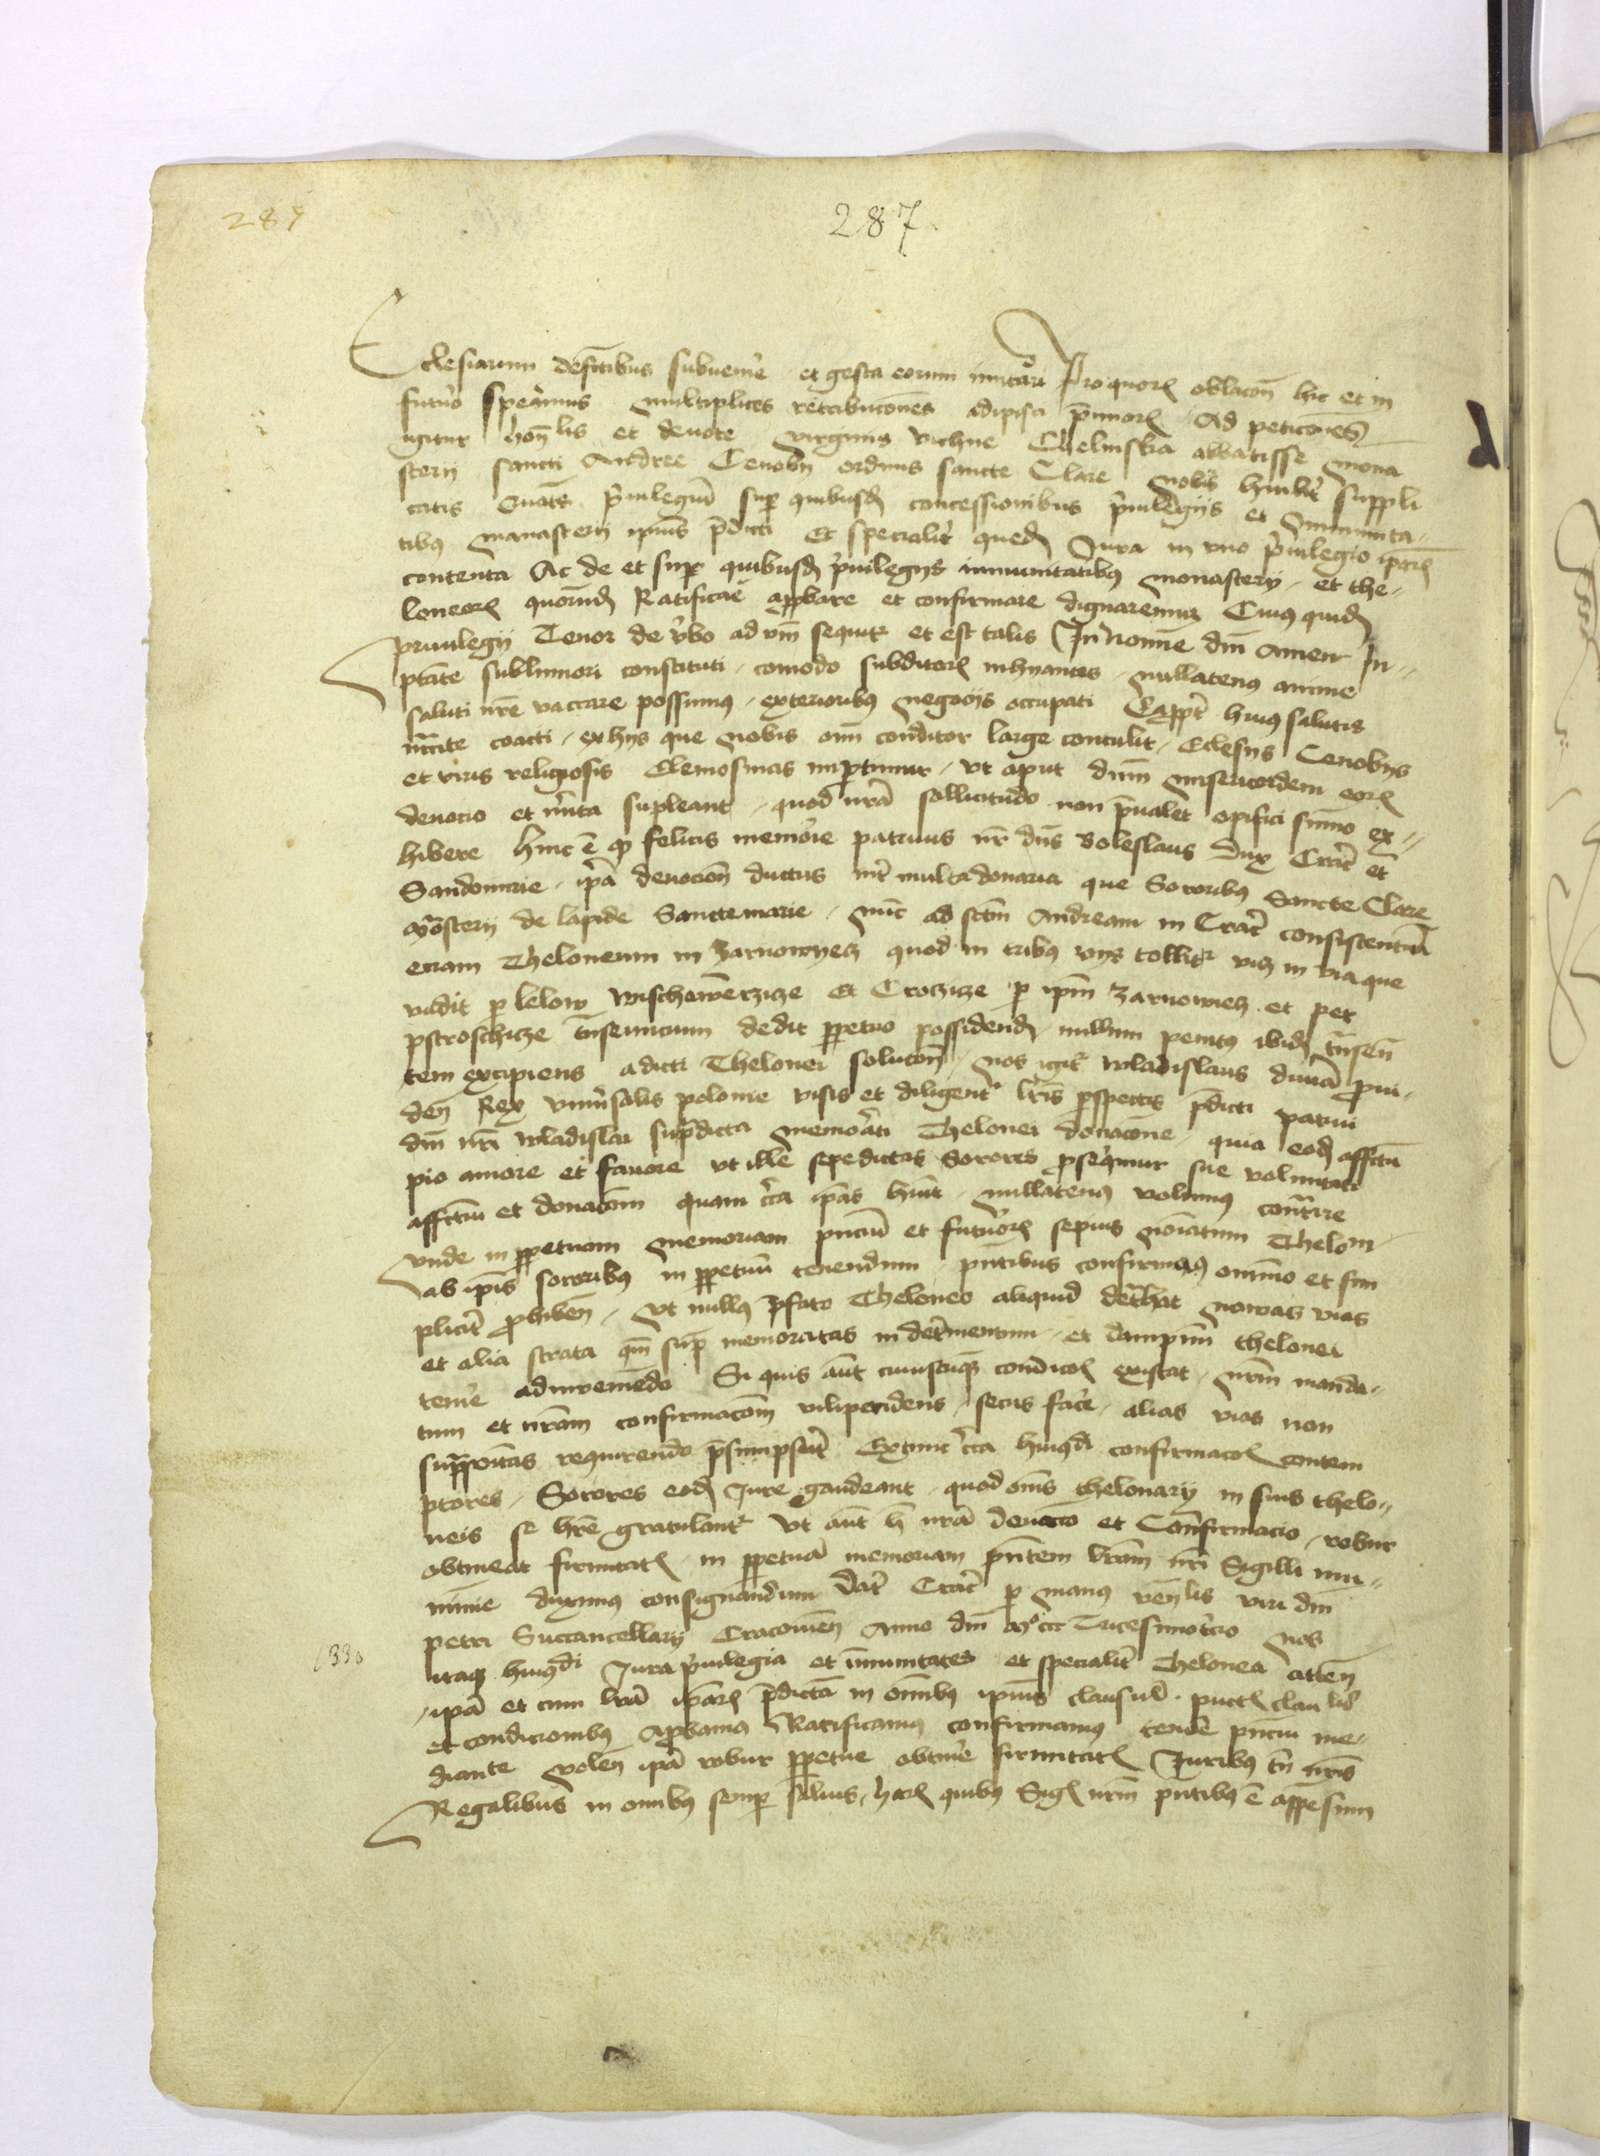 289
287
Ecclesiarum defectibus subvenire et gesta eorum imitari Pro quorum oblacōn hic et in
futuro speramus multiplices retribucōnes adipisci premiorum Ad peticōnes
igitur honlis et devote virginis Vichne Chelmska abbatisse mona
sterij sancti Andree Cenobij ordinis sancte Clare nobis humilr suppli
catis Quatr privilegiū sup quibusdam concessionibus privilegijs et Immunita-
tibus monasterij ipius pdicti Et specialir quedam Jura in uno privilegio ipar
contenta Ac de et sup quibusdam privilegijs immunitatibus monasterij et the-
loneor quorūdam Ratificare approbare et confirmare dignaremur Cuius quidem
privilegij Tenor de vbo ad vm sequitr et est talis In Nomine dni amen In
ptate sublimiori constituti comodo subditor inhyantes nullatenus anime
saluti nre vaccare possumus exterioribus negocijs occupati Eapptr huius salutis
coacti ex hijs que nobis oim conditor large contulit Eclesijs Cenobijs
et viris religiosis Elemosinas impertimur ut aput dnm misericordem eor
devocio et mrita supleant quod nra sollicitudo non prevalet opifici sumo ex-
hibere Hinc ē qd felicis memorie patruus nr dns Boleslaus Dux Cracr et
Sandomirie ipa devocion ductus intr multa donaria que Sororibus Sancte Clare
mōsterij de lapide Sancte marie nunc ad sctm Andream in Cracr consistentiū
etiam Theloneum in Zarnowyecz quod in tribus vijs tollitr vicz in via que
vadit p lelow Et Croczicze p ipm Zarnowiecz et per
pstroschicze trnseuncium dedit ppetuo possidend nullum penitus ibidem trnseūn
tem excipiens a dicti Thelonei solucōn nos igitr wladislaus divina provi-
den Rex universalis polonie visis et diligentr lris pspectis pdicti patrui
dni nri wladislai supradicta memorati Thelonei donacione quia eodem affctu
pio amore et favore ut ille sepedictas Sorores psequimur sue voluntati
affctui et donacōni quam circa ipas huit nullatenus volumus contrire
vnde in ppetuam memoriam pnciū et futuror sepius noiatum Thelon
ab ipis sororibus in ppetuū tenendum pntibus confirmamus omnino et sim
plicitr phiben Ut nullus pfato Theloneo aliquid detrhat novas vias
et alia strata qm sup memoratas in detrimentum et dampnū thelonei
temere adinveniēdo Si quis aut cuiuscūque condicōn existat nrm manda-
tum et nram confirmacōm vilipendens secus facere alias vias non
requirendo psumpserit Extunc circa huiusdi confirmacōn contem
ptores Sorores eodem Jure gaudeant quod omīs thelonarij in suis thelo-
neis se hre gratulantr Ut aut h nra devocio et Confirmacio robur
obtineat firmitatis in ppetuā memoriam pntem lram nri Sigilli mu-
nimine duximus consignandum Datr Cracr p manus venlis viri dni
petri Succancellarij Cracovien Anno dni Mº ccc Tricesimotercio nos
1330
itaque huiusdi Jura privilegia et īmunitates et specialitr Thelonea atten
ipā et cum lra ipar pdicta in omnibus ipius clausulis punctis
et condicionibus Aprobamus Ratificamus confirmamus tenore pnciu me-
diante volen ipa robur ppetue obtinere firmitatis Juribus tn nris
Regalibus in omnibus semper salvis harum quibus Sig nrm pntibus ē appēsum